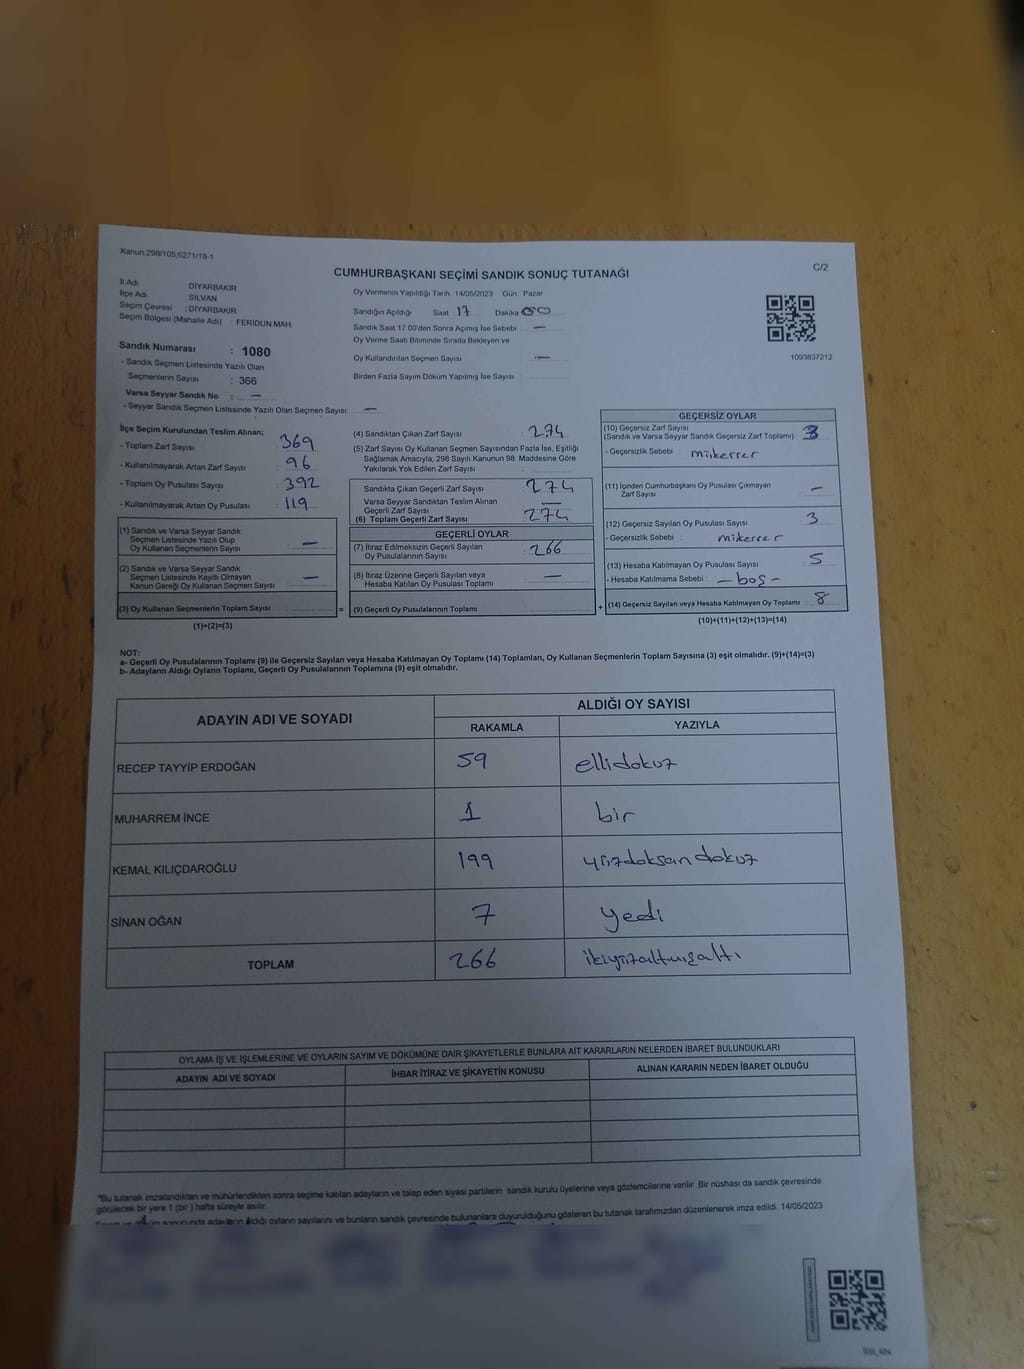 Kanun:298/105;6271/18-1
C/2
CUMHURBAŞKANI SEÇİMİ SANDIK SONUÇ TUTANAĞI
İl Adı : DİYARBAKIR
İlçe Adı : SİLVAN
Seçim Çevresi : DİYARBAKIR
Seçim Bölgesi (Mahalle Adı) : FERİDUN MAH.
Sandık Numarası : 1080
- Sandık Seçmen Listesinde Yazılı Olan
Seçmenlerin Sayısı : 366
Varsa Seyyar Sandık No : —
- Seyyar Sandık Seçmen Listesinde Yazılı Olan Seçmen Sayısı : —
Oy Vermenin Yapıldığı Tarih :14/05/2023 Gün : Pazar
Sandığın Açıldığı Saat 17 Dakika 00
Sandık Saat 17:00'den Sonra Açımış İse Sebebi : —
Oy Verme Saati Bitiminde Sırada Bekleyen ve
Oy Kullandırılan Seçmen Sayısı : —
Birden Fazla Sayım Döküm Yapılmış İse Sayısı :
1093837212
İlçe Seçim Kurulundan Teslim Alınan;
- Toplam Zarf Sayısı : 369
- Kullanılmayarak Artan Zarf Sayısı : 96
- Toplam Oy Pusulası Sayısı : 392
- Kullanılmayarak Artan Oy Pusulası : 119
(1) Sandık ve Varsa Seyyar Sandık
Seçmen Listesinde Yazılı Olup
Oy Kullanan Seçmenlerin Sayısı : —
(2) Sandık ve Varsa Seyyar Sandık
Seçmen Listesinde Kayıtlı Olmayan
Kanun Gereği Oy Kullanan Seçmen Sayısı : —
(3) Oy Kullanan Seçmenlerin Toplam Sayısı : =
(1)+(2)=(3)
(4) Sandıktan Çıkan Zarf Sayısı : 274
(5) Zarf Sayısı Oy Kullanan Seçmen Sayısından Fazla İse, Eşitliği
Sağlamak Amacıyla; 298 Sayılı Kanunun 98. Maddesine Göre
Yakılarak Yok Edilen Zarf Sayısı :
Sandıkta Çıkan Geçerli Zarf Sayısı : 274
Varsa Seyyar Sandıktan Teslim Alınan
Geçerli Zarf Sayısı : —
(6) Toplam Geçerli Zarf Sayısı : 274
GEÇERLİ OYLAR
(7) İtiraz Edilmeksizin Geçerli Sayılan
Oy Pusulalarının Sayısı : 266
(8) İtiraz Üzerine Geçerli Sayılan veya
Hesaba Katılan Oy Pusulası Toplamı : —
(9) Geçerli Oy Pusulalarının Toplamı : +
GEÇERSİZ OYLAR
(10) Geçersiz Zarf Sayısı
(Sandık ve Varsa Seyyar Sandık Geçersiz Zarf Toplamı) : 3
- Geçersizlik Sebebi : mükerrer
(11) İçinden Cumhurbaşkanı Oy Pusulası Çıkmayan
Zarf Sayısı : —
(12) Geçersiz Sayılan Oy Pusulası Sayısı : 3
- Geçersizlik Sebebi : mükerrer
(13) Hesaba Katılmayan Oy Pusulası Sayısı : 5
- Hesaba Katılmama Sebebi : — boş —
(14) Geçersiz Sayılan veya Hesaba Katılmayan Oy Toplamı : 8
(10)+(11)+(12)+(13)=(14)
NOT:
a- Geçerli Oy Pusulalarının Toplamı (9) ile Geçersiz Sayılan veya Hesaba Katılmayan Oy Toplamı (14) Toplamları, Oy Kullanan Seçmenlerin Toplam Sayısına (3) eşit olmalıdır. (9)+(14)=(3)
b- Adayların Aldığı Oyların Toplamı, Geçerli Oy Pusulalarının Toplamına (9) eşit olmalıdır.
ADAYIN ADI VE SOYADI ALDIĞI OY SAYISI
RAKAMLA YAZIYLA
RECEP TAYYİP ERDOĞAN 59 ellidokuz
MUHARREM İNCE 1 bir
KEMAL KILIÇDAROĞLU 199 yüzdoksandokuz
SİNAN OĞAN 7 yedi
TOPLAM 266 ikiyüzaltmışaltı
OYLAMA İŞ VE İŞLEMLERİNE VE OYLARIN SAYIM VE DÖKÜMÜNE DAİR ŞİKAYETLERLE BUNLARA AİT KARARLARIN NELERDEN İBARET BULUNDUKLARI
ADAYIN ADI VE SOYADI İHBAR İTİRAZ VE ŞİKAYETİN KONUSU ALINAN KARARIN NEDEN İBARET OLDUĞU
*Bu tutanak imzalandıktan ve mühürlendikten sonra seçime katılan adayların ve talep eden siyasi partilerin sandık kurulu üyelerine veya gözlemcilerine verilir. Bir nüshası da sandık çevresinde
görülecek bir yere 1 (bir ) hafta süreyle asılır.
sonucunda adayların aldığı oyların sayılarını ve bunların sandık çevresinde bulunanlara duyurulduğunu gösteren bu tutanak tarafımızdan düzenlenerek imza edildi. 14/05/2023